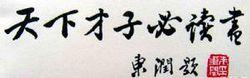 天下才子必读书
东润题